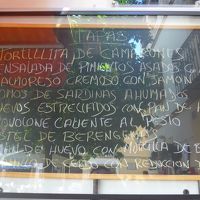 TAPAS
TORTILLITA DE CAMARONES
ENSALADA DE PIMIENTOS ASADOS
SALMOREJO CREMOSO CON JAMON
LOMOS DE SARDINAS AHUMADOS
HUEVOS ESTRELLADOS CON PAN DE
PROVOLONE CALIENTE AL PESTO
PASTEL DE BERENGENAS
DE HUEVO CON MORCILLA DE
DE CERDO CON REDUCCION